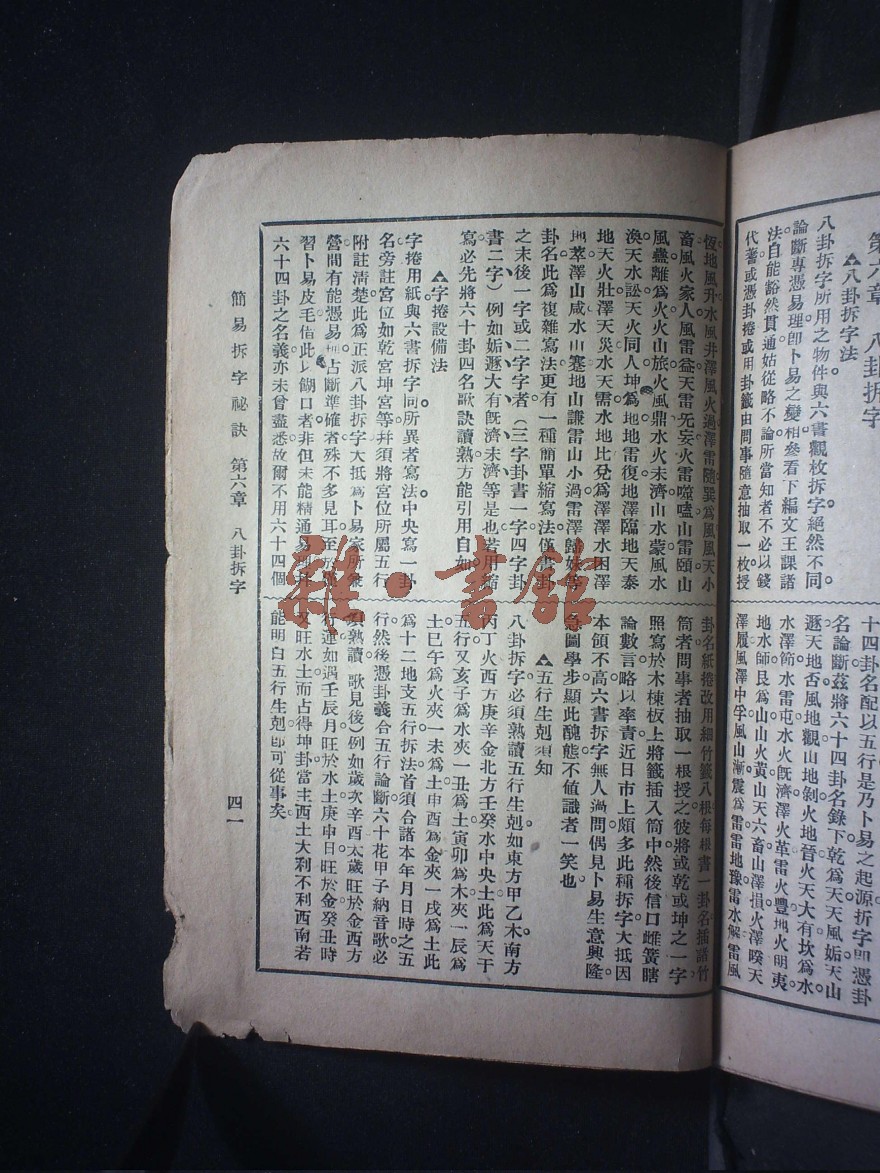 第六章 八卦拆字
▲八卦拆字法
八卦拆字所用之物件與六書觀枚拆字絕然不同。
論斷專憑易理卽卜易之變相參看下編文王課諸
法。自能豁然貫通姑從略不論所當知者不必以錢
代蓍或憑卦捲或用卦籤由問事隨意抽取一枚授
十四卦名配以五行是乃卜易之起源拆字卽憑卦
名論斷茲將六十四卦名錄下乾爲天天風姤天山
遯天地否風地觀山地剝火地晉火天大有坎爲水。
水澤節水雷屯水火旣濟澤火革雷火豐地火明夷。
地水師艮爲山山火黃山天六畜山澤損火澤睽天
澤履風澤中孚風山漸震爲雷雷地豫雷水解雷風
恆地風升水風井澤風火過澤雷隨巽爲風風天小
畜風火家人風雷益天雷旡妄火雷噬嗑山雷頤山
風蠱離爲火火山旅火風鼎水火未濟山水蒙風水
渙天水訟天火同人坤爲地地雷復地澤臨地天泰
地天火壯澤天災水天需水地比兌爲澤澤水困澤
地萃澤山咸水山蹇地山謙雷山小過雷澤歸妹等
卦名此爲複雜寫法更有一種簡單縮寫法僅書卦
之末後一字或二字字者(三字卦書一字四字卦
書二字)例如姤遯大有旣濟未濟等是也若用縮
寫必先將六十卦四名歌訣讀熟方能引用自如
▲字捲設備法
字捲用紙與六書拆字同所異者寫法中央寫一卦
名旁註宮位如乾宮坤宮等幷須將宮位所屬五行
附註淸楚此爲正派八卦拆字大抵爲卜易家所兼
營間有能憑易理占斷準確者殊不多見耳至於
習卜易皮毛借此以餬口者非但未能精通易理幷
六十四卦之名義亦未曾盡悉故爾不用六十四個
卦名紙捲改用細竹籤八根每根書一卦名插諸竹
筒者問事者抽取一根授之彼將或乾或坤之一字
照寫於木棟板上將籤插入筒中然後信口雌黃瞎
論數言略以塞責近日市上頗多此種拆字大抵因
本領不高六書拆字無人過問偶見卜易生意興隆
急圖學步顯此醜態不値識者一笑也
▲五行生剋須知
八卦拆字必須熟讀五行生剋如東方甲乙木南方
丙丁火西方庚辛金北方壬癸水中央土此爲天干
五行又亥子爲水夾一丑爲土寅卯爲木夾一辰爲
土巳午爲火夾一未爲土申酉爲金夾一戌爲土此
爲十二地支五行拆法首須合諸本年月日時之五
行然後憑卦義合五行論斷六十花甲子納音歌必
須熟讀(歌見後)例如歲次辛酉太歲旺於金西方
行運如遇壬辰月旺於水土庚申日旺於金癸丑時
又旺水土而占得坤卦當主西土大利不利西南若
能明白五行生剋卽可從事矣。
簡易拆字祕訣 第六章 八卦拆字
四一
雜·書館